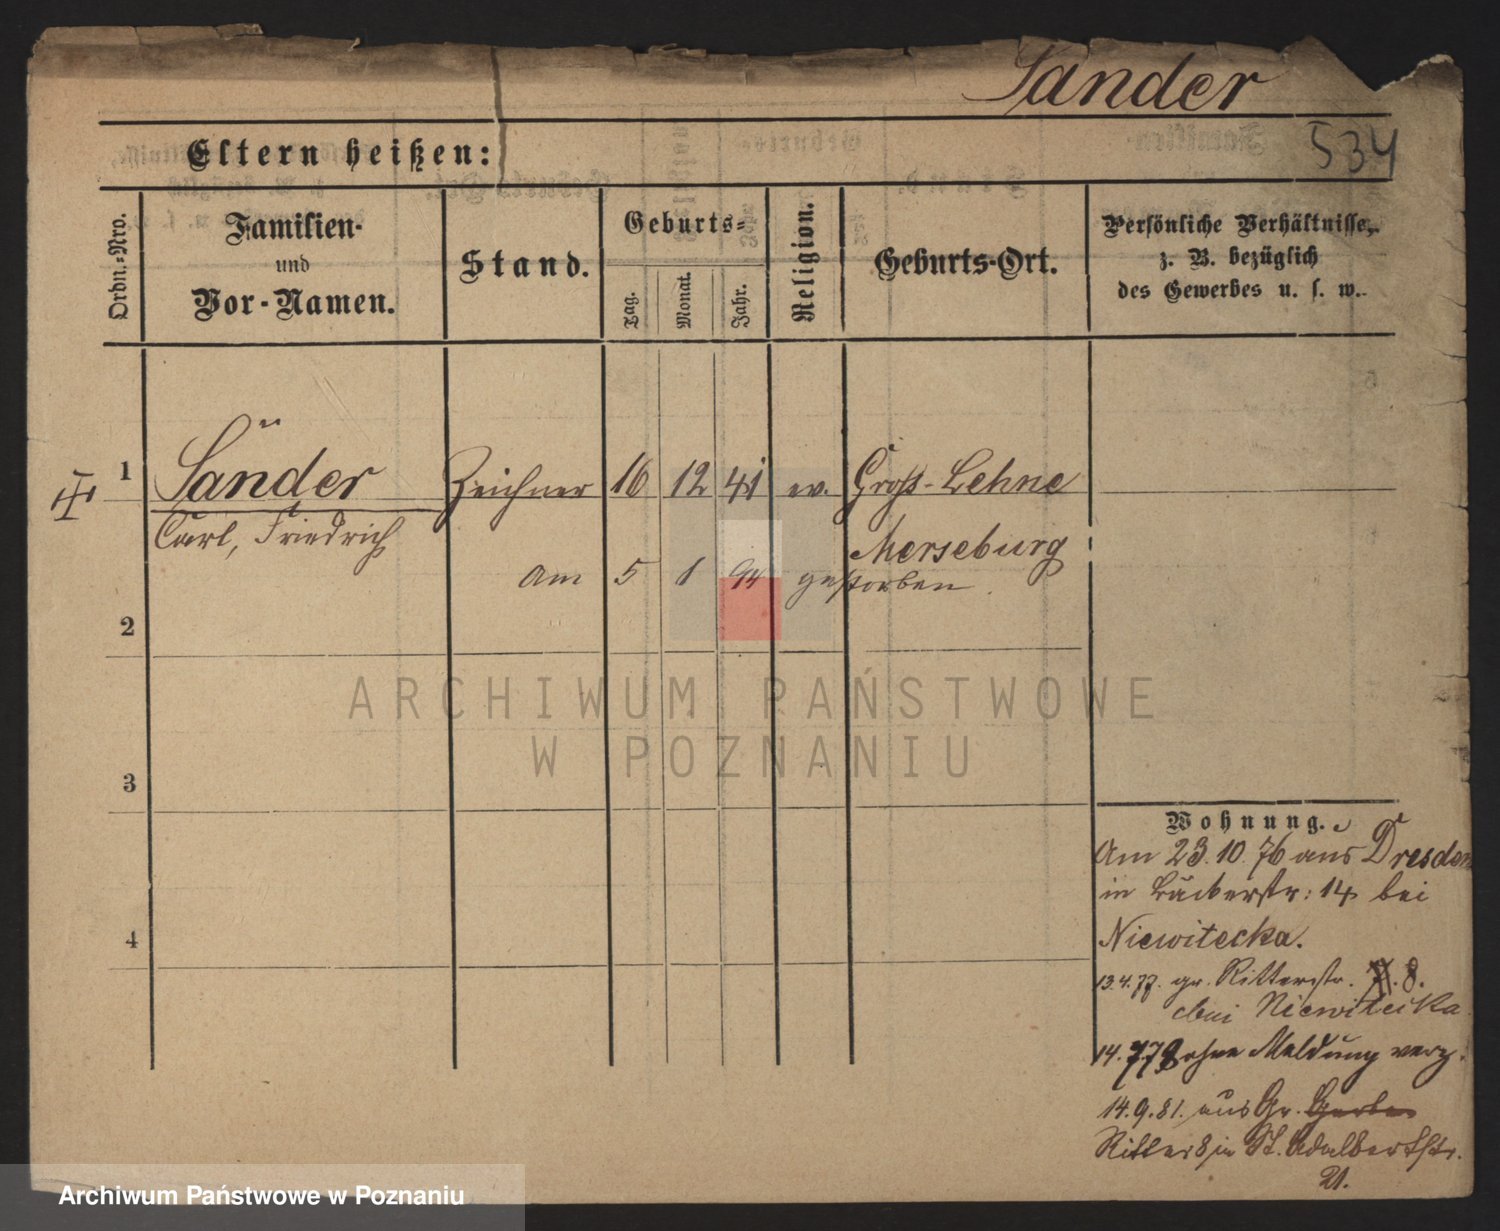 Sander
534
Eltern heißen:
Ordn.-Nro.
Familien-
und
Vor-Namen.
Stand.
Geburts-
Tag.
Monat.
Jahr.
Religion.
Geburts-Ort.
Persönliche Verhältnisse,
z. B. bezüglich
des Gewerbes u. s. w.
1 Sander Zeichner 16 12 41 ev. Groß-Lehne
Carl, Friedrich
Merseburg
am 5 1 94 gestorben.
2
3
4
Wohnung.
Am 23.10.76 aus Dresden
in Bäckerstr: 14 bei
Niewitecka.
13.4.77. gr. Ritterstr. 8.
bei Niewitecka
14.7.79 ohne Meldung verz.
14.9.81. aus Gr. Gerber
Ritter 8 in St. Adalbertstr.
21.
ARCHIWUM PAŃSTWOWE
W POZNANIU
Archiwum Państwowe w Poznaniu